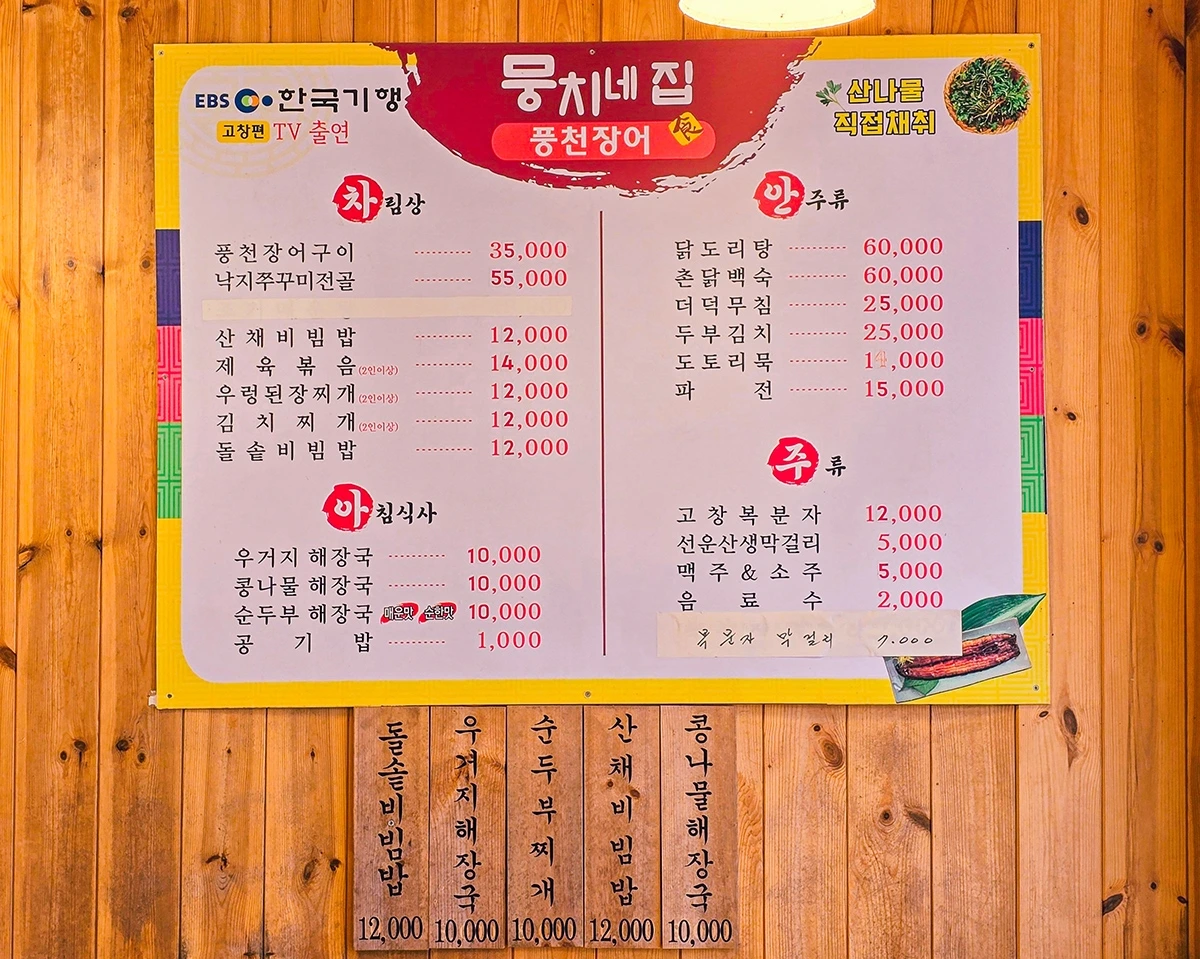 EBS 한국기행
고창편 TV 출연
뭉치네 집
풍천장어
산나물
직접채취
차림상
풍천장어구이 35,000
낙지쭈꾸미전골 55,000
산채비빔밥 12,000
제육볶음(2인이상) 14,000
우렁된장찌개(2인이상) 12,000
김치찌개(2인이상) 12,000
돌솥비빔밥 12,000
아침식사
우거지 해장국 10,000
콩나물 해장국 10,000
순두부 해장국 매운맛 순한맛 10,000
공기밥 1,000
안주류
닭도리탕 60,000
촌닭백숙 60,000
더덕무침 25,000
두부김치 25,000
도토리묵
파전 15,000
주류
고창복분자 12,000
선운산생막걸리 5,000
맥주 & 소주 5,000
음료수 2,000
복분자 막걸리 7.000
돌솥비빔밥 12,000
우거지해장국 10,000
순두부찌개 10,000
산채비빔밥 12,000
콩나물해장국 10,000